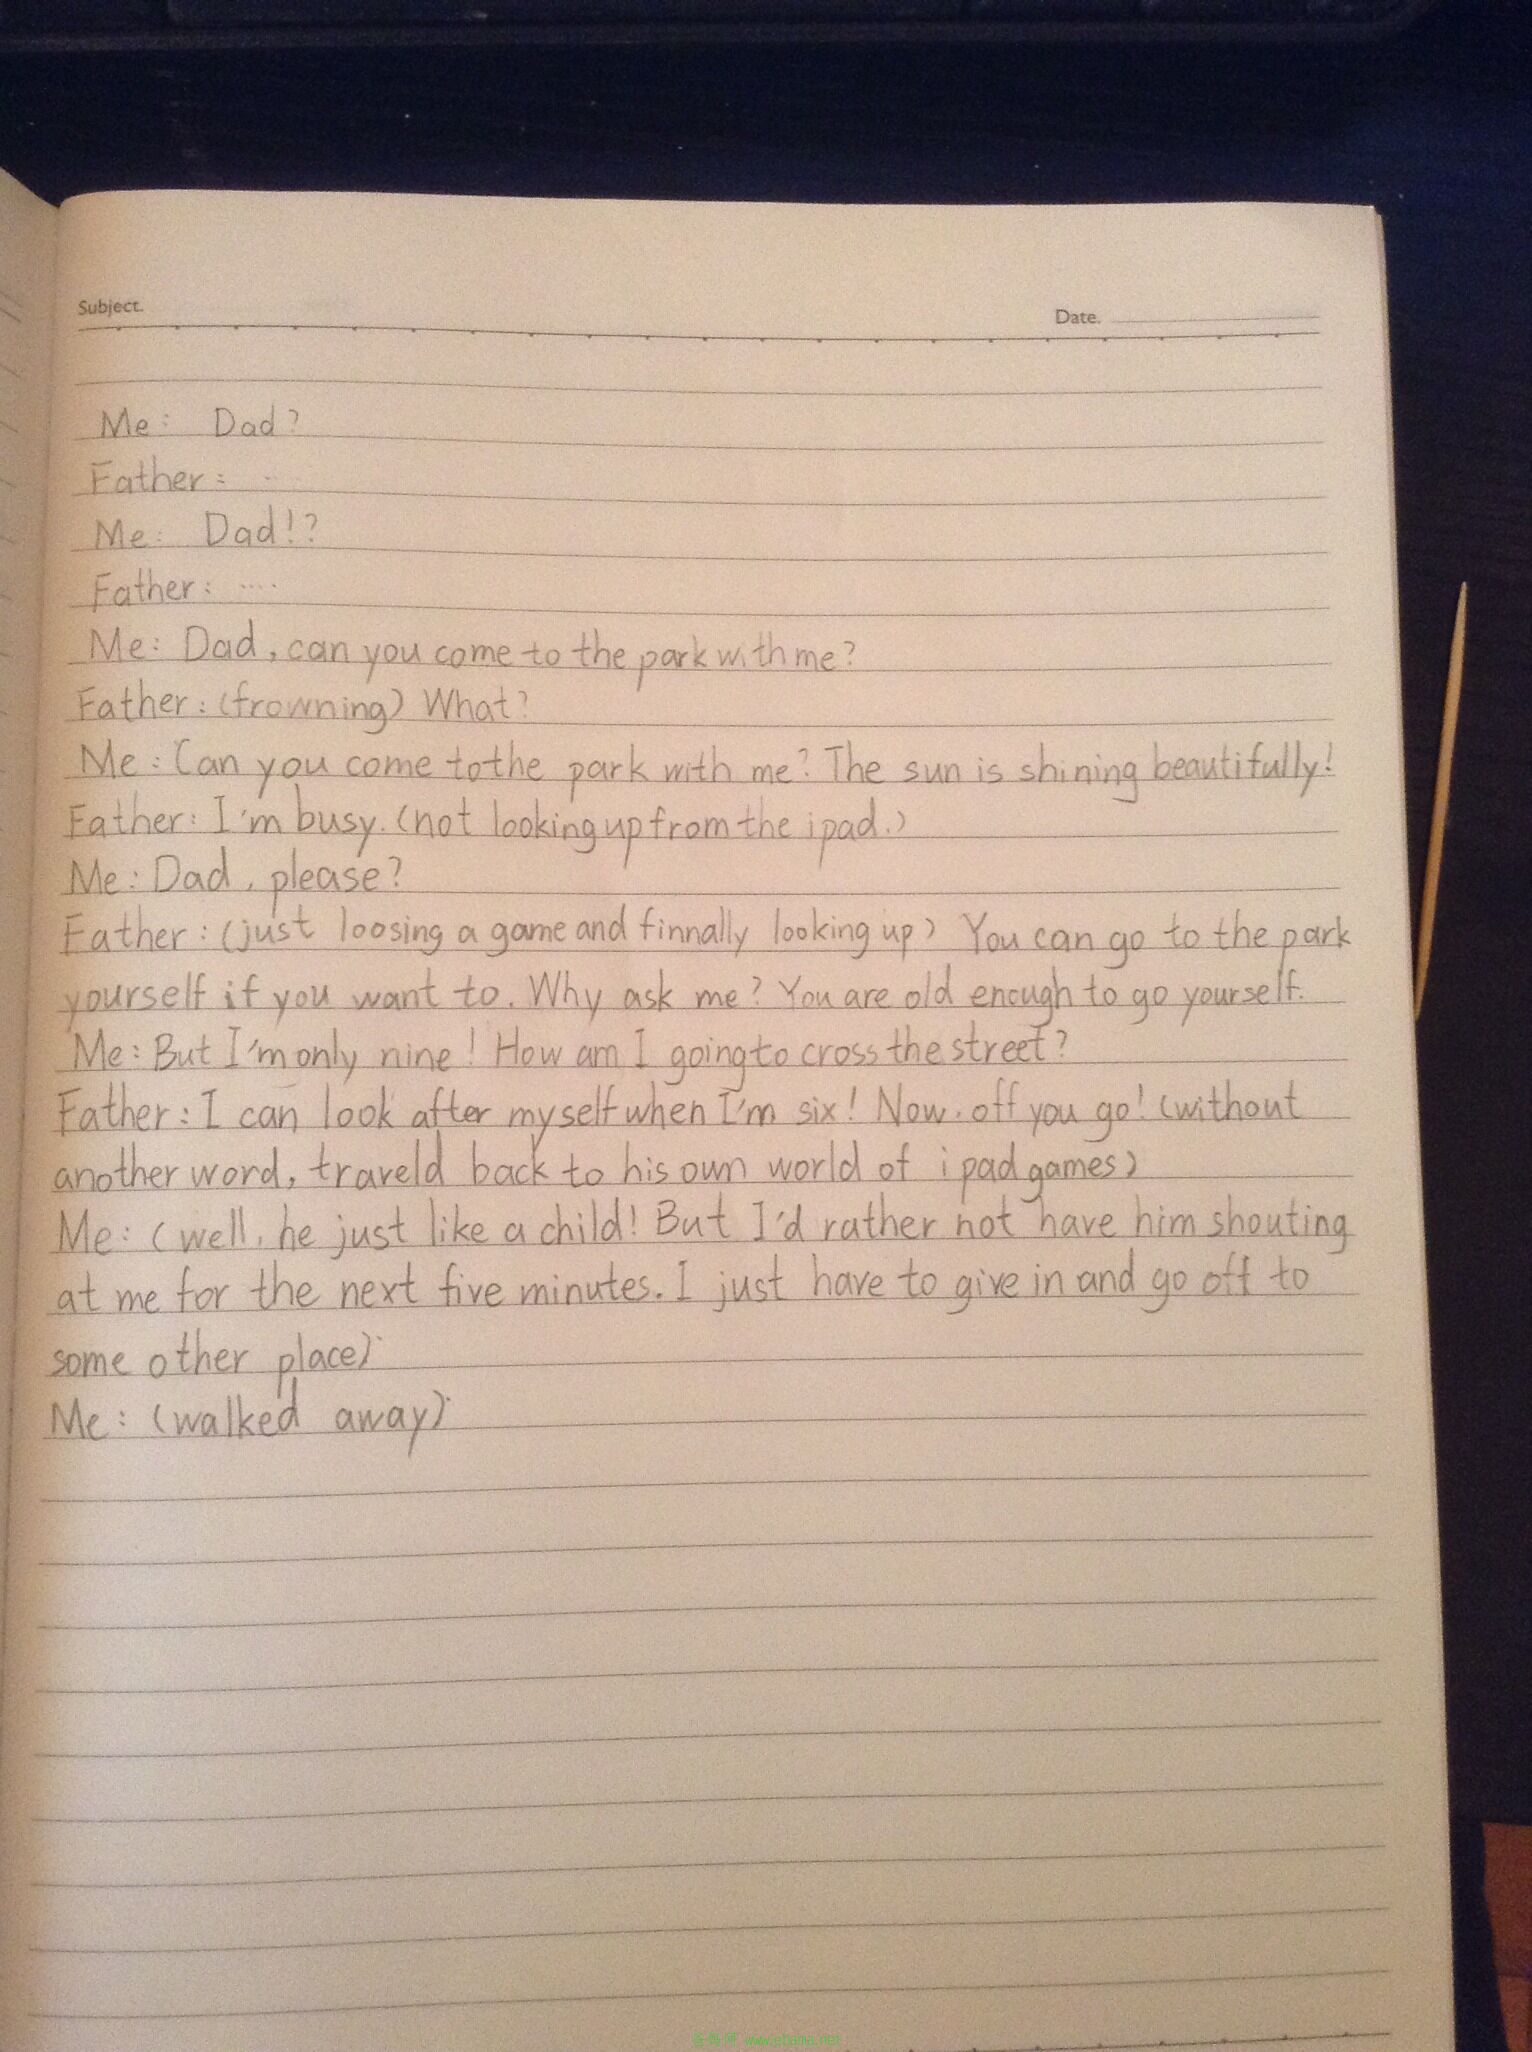 Subject.
Date.
Me: Dad?
Father: ...
Me: Dad!?
Father: ....
Me: Dad, can you come to the park with me?
Father: (frowning) What?
Me: Can you come to the park with me? The sun is shining beautifully!
Father: I'm busy. (not looking up from the ipad.)
Me: Dad, please?
Father: (just loosing a game and finnally looking up) You can go to the park
yourself if you want to. Why ask me? You are old enough to go yourself.
Me: But I'm only nine! How am I going to cross the street?
Father: I can look after myself when I'm six! Now, off you go! (without
another word, traveld back to his own world of ipad games)
Me: (well, he just like a child! But I'd rather not have him shouting
at me for the next five minutes. I just have to give in and go off to
some other place).
Me: (walked away).
www.ebama.net